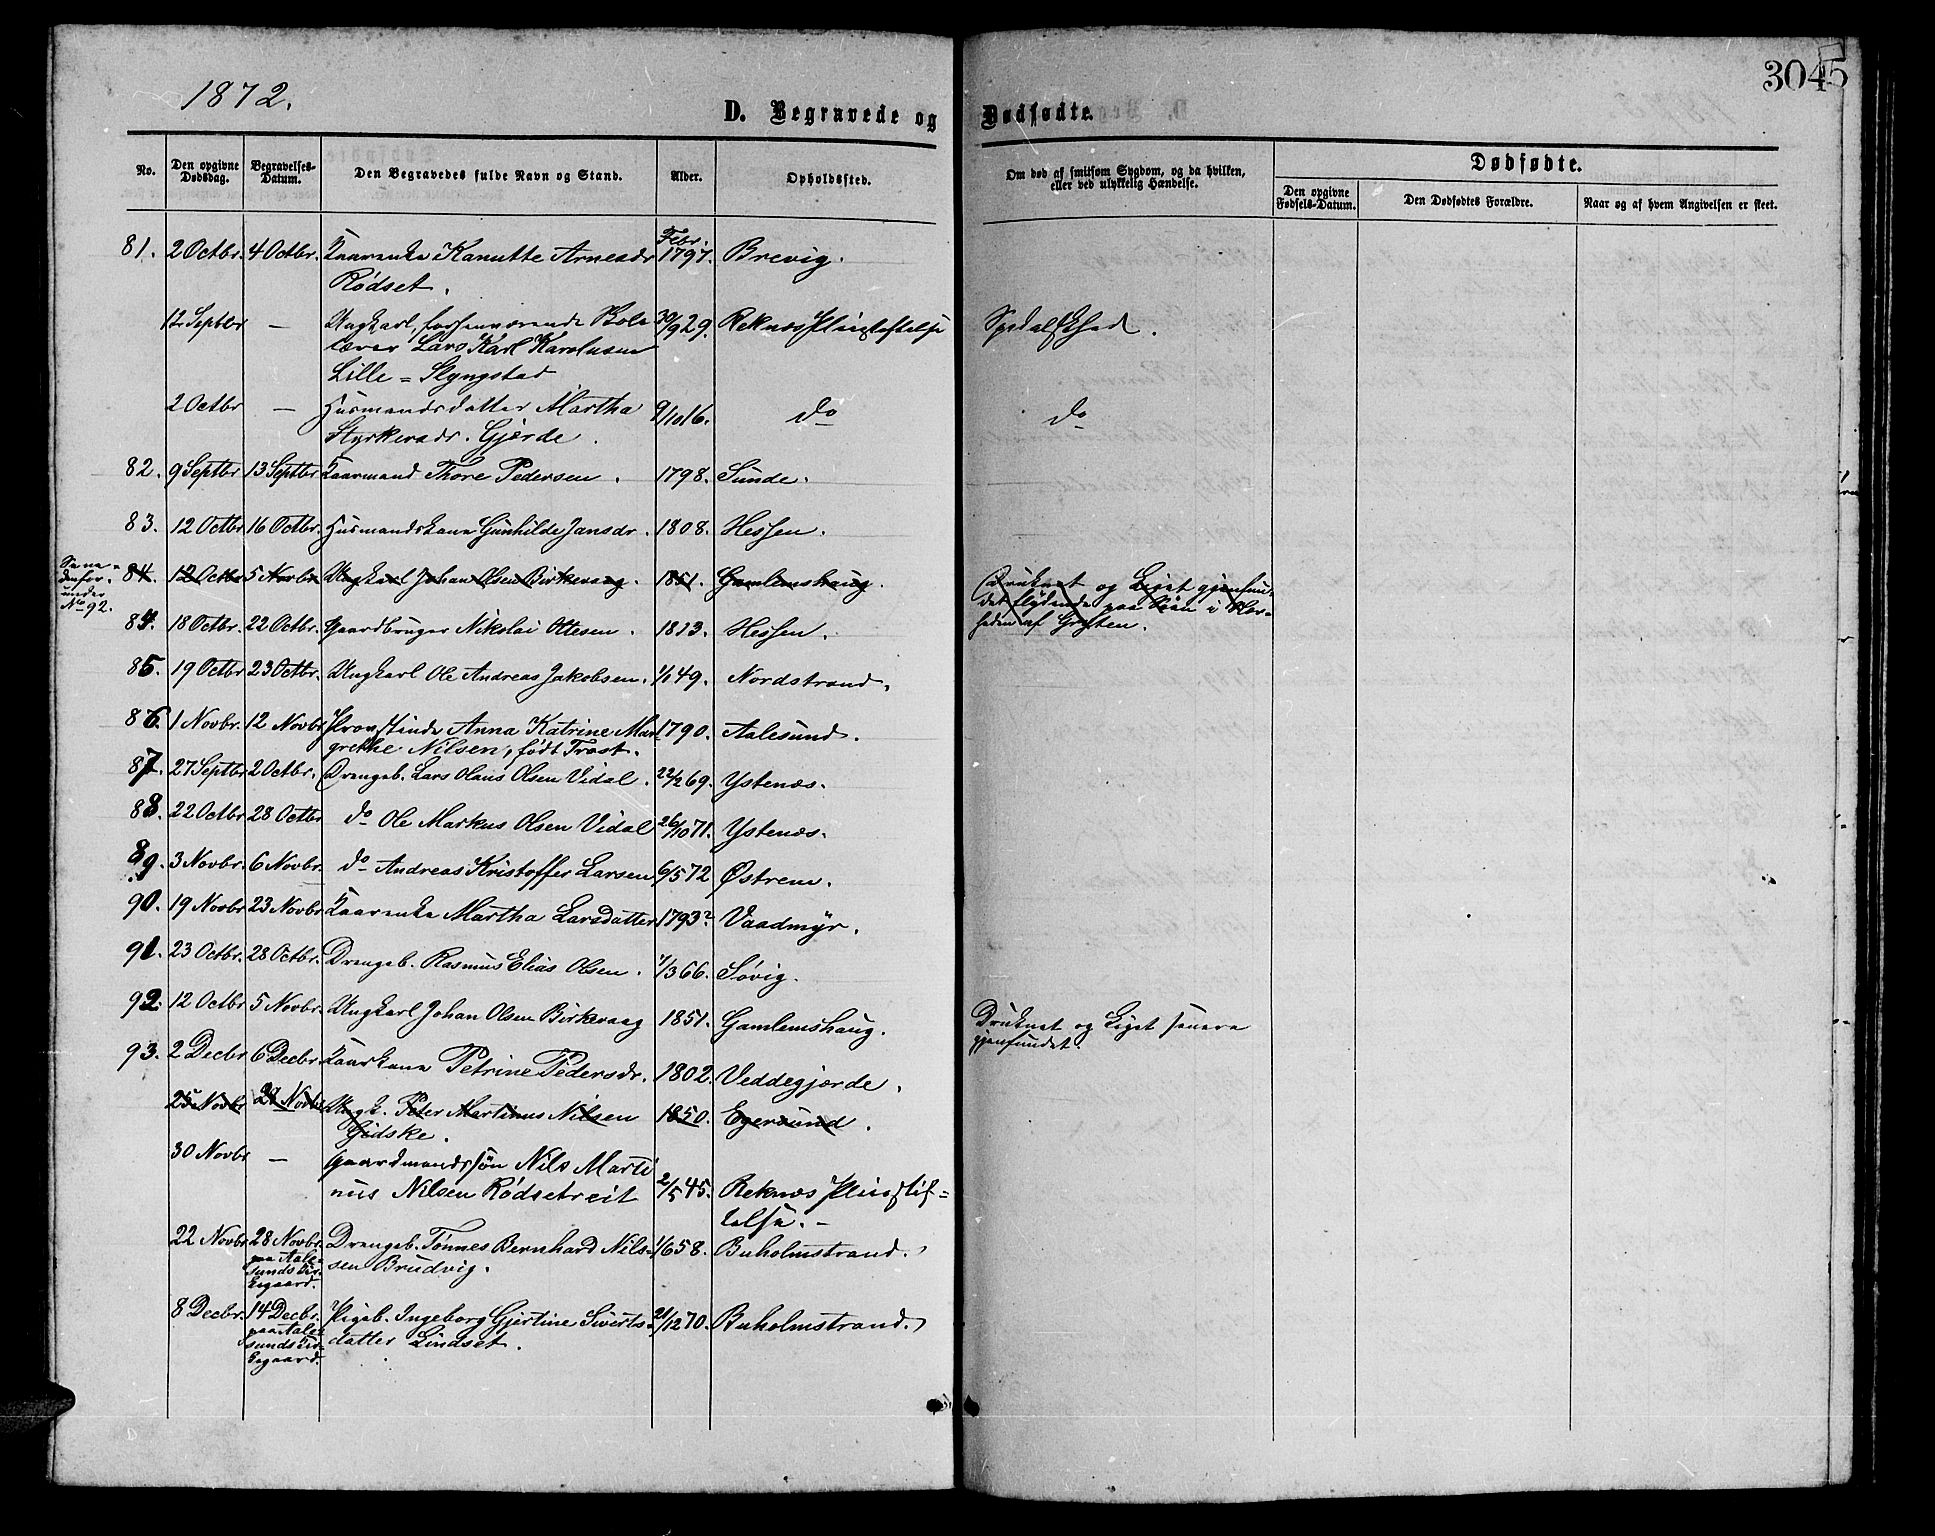 1872.
3045
D. Begravede og Dødfødte.
No.
Den opgivne Dødsdag.
Begravelses-Datum.
Den Begravedes fulde Navn og Stand.
Alder.
Opholdssted.
Om død af smitsom Sygdom, og da hvilken,
eller ved ulykkelig Hændelse.
Dødfødte.
Den opgivne Fødsels-Datum.
Den Dødfødtes Forældre.
Naar og af hvem Angivelsen er skeet.
81. 2 Octbr. 4 Octbr. Kaarenke Kanutte Arnesdr Febr. 1797. Brevig.
Rødset.
12 Septbr — Ungkarl, forhenværende Skole 30/9 29. Reknæs Pleiestiftelse Spedalskhed.
lærer Lars Karl Karolusen
Lille = Slyngstad
2 Octbr — Husmandsdatter Martha 9/10 16. do do
Styrkersdr. Gjerde.
82. 9 Septbr 13 Septbr Kaarmand Thore Pedersen. 1798. Sunde.
83. 12 Octbr 16 Octbr. Husmandskone Gunhilde Jansdr. 1808. Hessen.
under
No 92.
84. 12 Octbr 5 Novbr Ungkarl Johan Olsen Birkevaag. 1851. Gamlemshaug. Druknet og Liget gjenfun-
det flydende paa Søen i Nær-
heden af Grytten.
84. 18 Octbr. 22 Octbr. Gaardbruger Nikolai Ottesen. 1813. Hessen.
85. 19 Octbr 23 Octbr. Ungkarl Ole Andreas Jakobsen. 1/1 49. Nordstrand.
86. 1 Novbr. 12 Novbr Provstinde Anna Katrine Mar 1790. Aalesund.
grethe Nilsen, født Trost.
87. 27 Septbr 2 Octbr. Drengeb. Lars Olaus Olsen Vidal. 22/2 69. Ystenæs.
88. 22 Octbr 28 Octbr do Ole Markus Olsen Vidal 26/10 71. Ystenæs.
89. 3 Novbr. 6 Novbr. do Andreas Kristoffer Larsen 6/5 72 Østrem.
90. 19 Novbr 23 Novbr Kaarenke Martha Larsdatter 1793? Vaadmyr.
91. 23 Octbr. 28 Octbr. Drengeb. Rasmus Elias Olsen. 1/3 66. Søvig.
92. 12 Octbr 5 Novbr. Ungkarl Johan Olsen Birkevaag 1851. Gamlemshaug. Druknet og Liget senere
gjenfundet.
93. 2 Decbr 6 Decbr. Kaarkone Petrine Pedersdr. 1802. Veddegjærde.
25 Novbr 29 Novbr Ungk. Peter Martinus Nilsen 1850. Egersund.
Gidske.
30 Novbr — Gaardmandssøn Nils Marti
nus Nilsen Rødsetreit 2/5 45. Reknæs Pleiestif=
telse. –
22 Novbr 28 Novbr. Drengeb. Tønnes Bernhard Nils= 1/6 58. Buholmstrand.
paa Aale= sen Brudvig.
sunds Kir=
kegaard.
8 Decbr. 14 Decbr. Pigeb. Ingeborg Gjertine Siverts= 21/12 70. Buholmstrand.
paa Aale= datter Lindset.
sunds Kir=
kegaard.